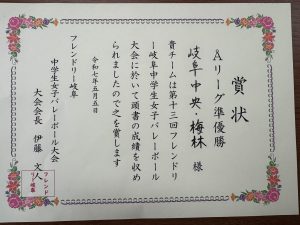 賞状
Aリーグ準優勝
岐阜中央・梅林 様
貴チームは第十三回フレンドリ
ー岐阜中学生女子バレーボール
大会に於いて頭書の成績を収め
られましたので之を賞します
令和七年五月五日
フレンドリー岐阜
中学生女子バレーボール大会
大会会長 伊藤 文人
フレンド
リー岐阜